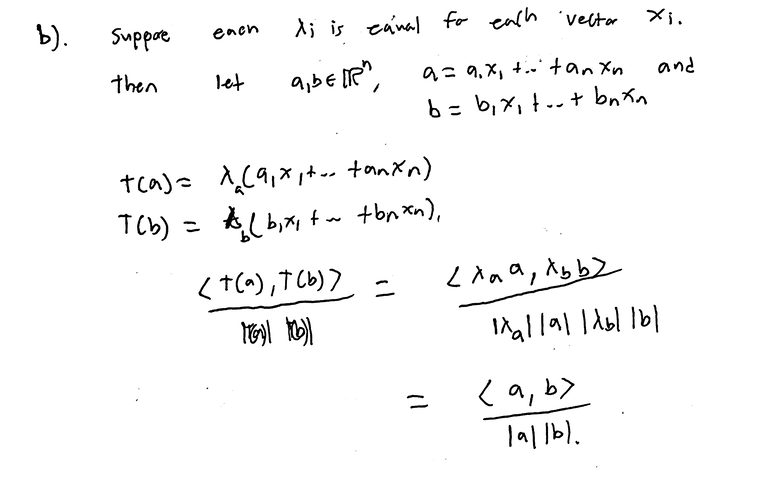 b). Suppose each λi is equal for each vector xi.
then let a,b∈ℝⁿ, a = a₁x₁ +...+ aₙxₙ and
b = b₁x₁ + ... + bₙxₙ
T(a) = λₐ(a₁x₁+... +aₙxₙ)
T(b) = λ_b(b₁x₁ + ... +bₙxₙ),
<T(a), T(b)> / |T(a)| |T(b)| = <λₐa, λ_b b> / |λₐ| |a| |λ_b| |b|
= <a, b> / |a| |b|.